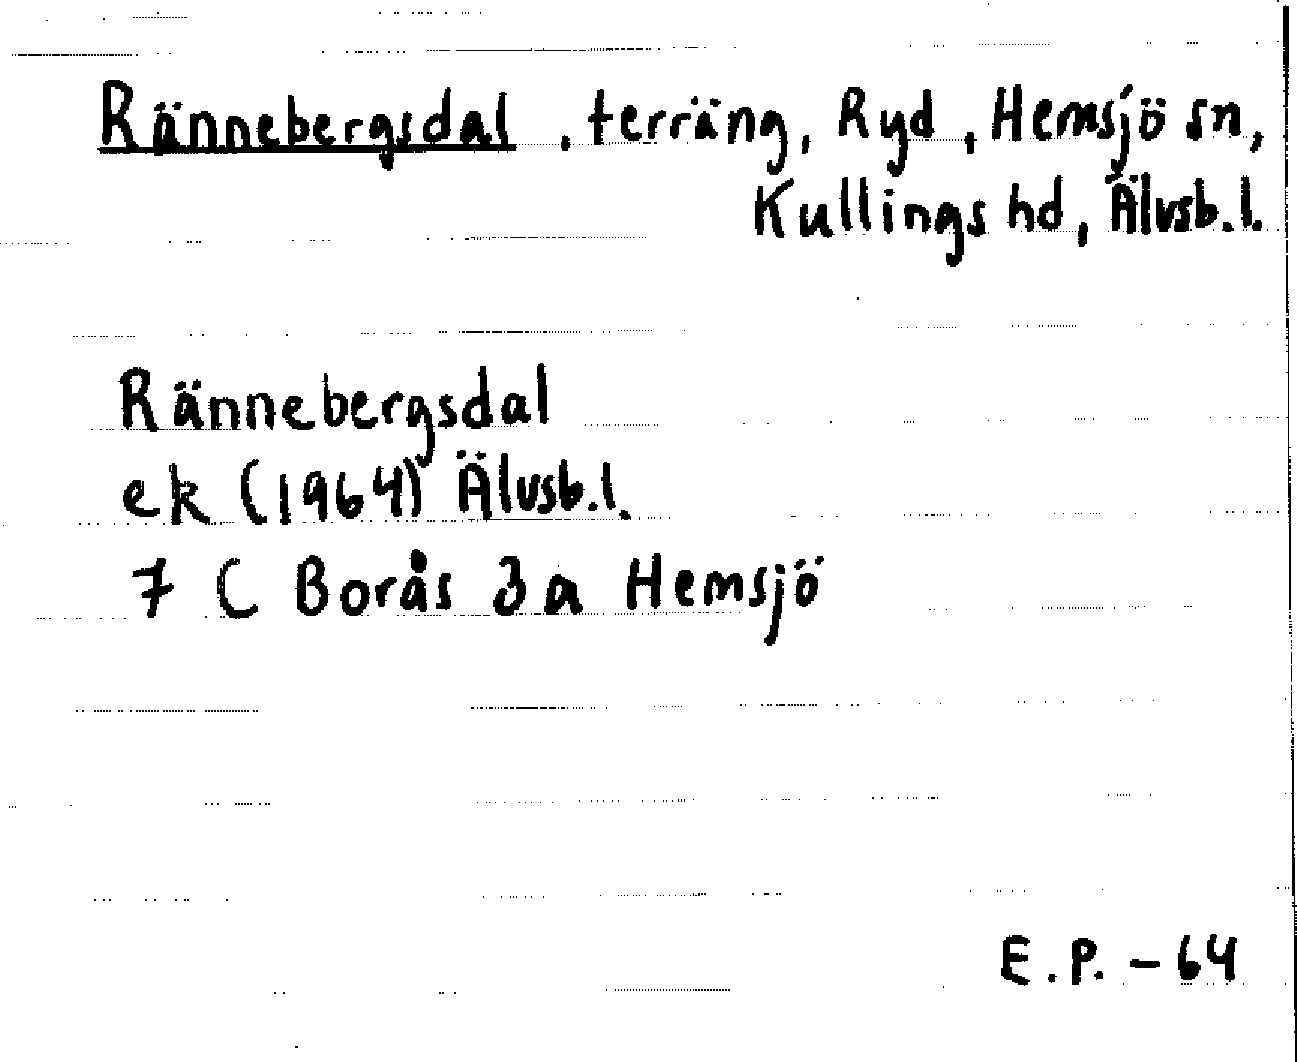 Rännebergsdal, terräng, Ryd, Hemsjö sn,
Kullings hd, Älvsb.l.
Rännebergsdal
ek (1964) Älvsb.l.
7 C Borås 3 a Hemsjö
E.P. - 64